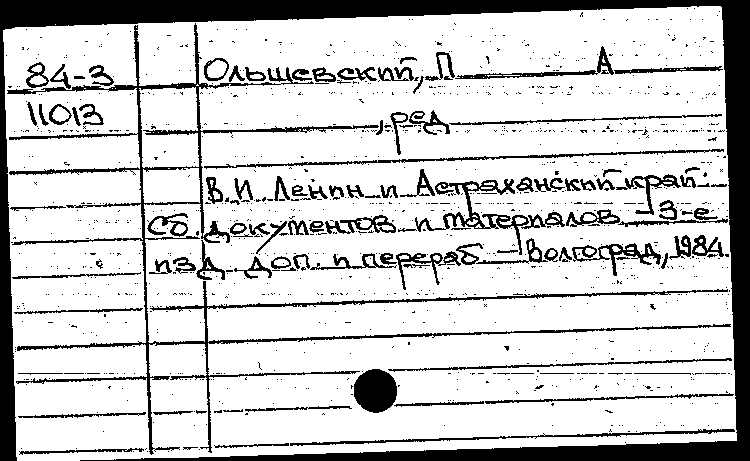 84-3 Ольшевский, П А
11013 , ред
В.И Ленин и Астраханский край.
Сб. документов и материалов – 3-е
изд. доп. и перераб. – Волгоград, 1984